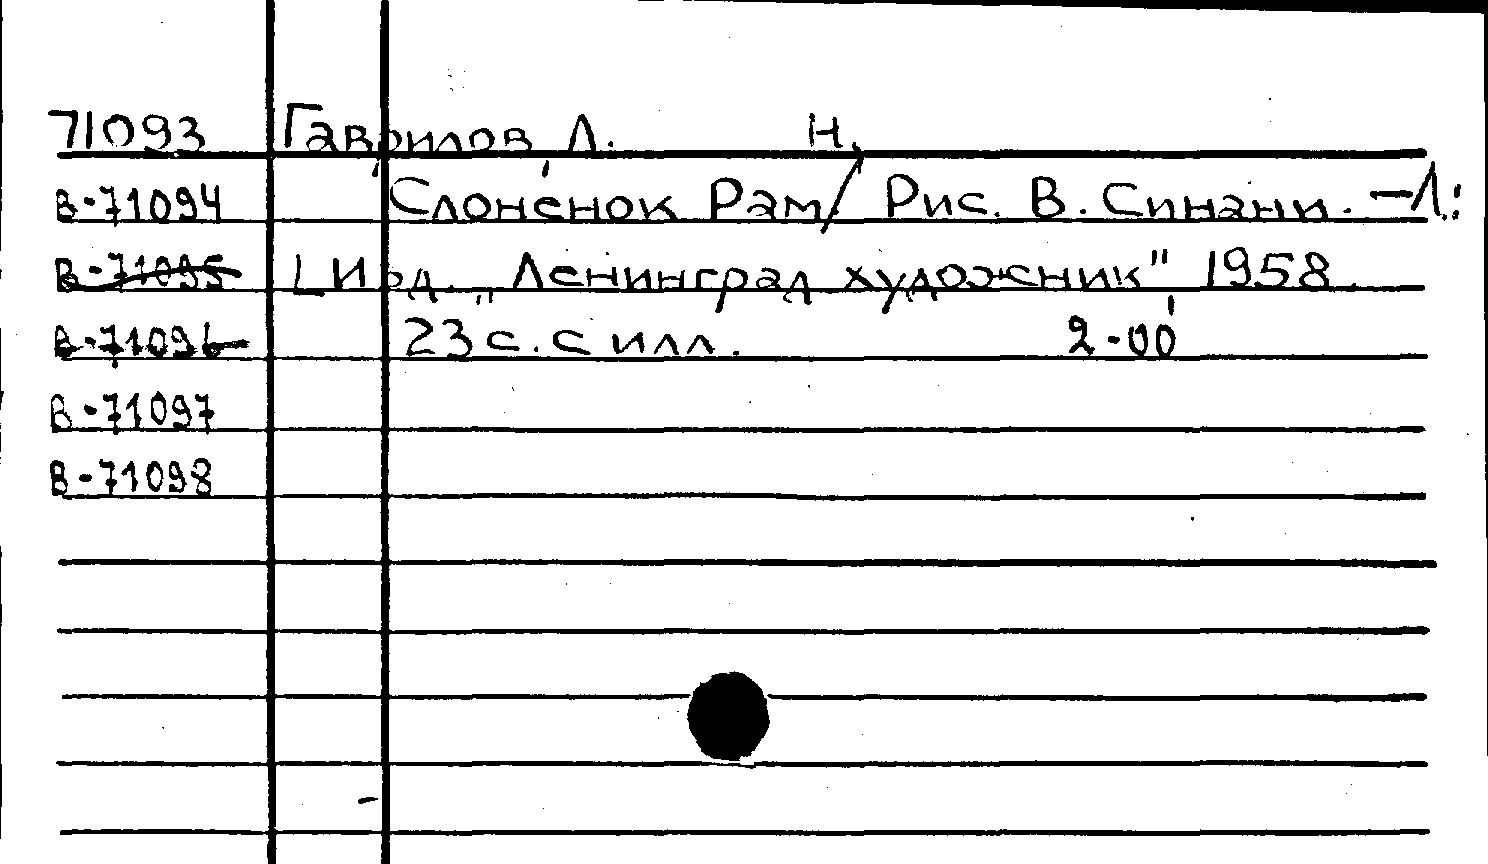 71093 Гаврилов, Л. Н.
В-71094 Слоненок Рам / Рис. В. Синани. – Л.:
В-71095 [Изд. „Ленинград художник" 1958.
В-71096 23 с. с илл. 2-00
В-71097
В-71098